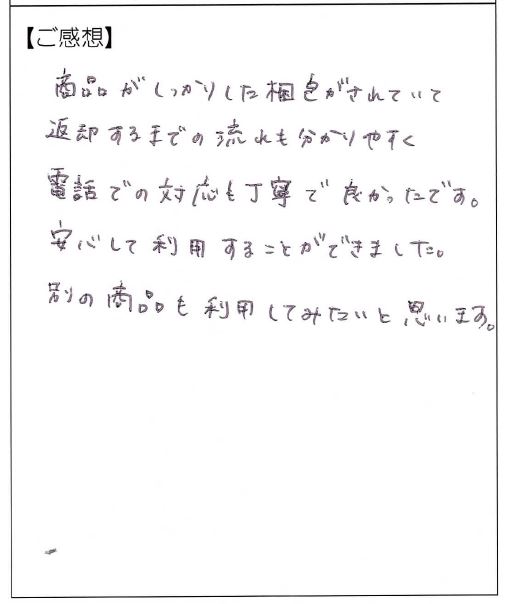 【ご感想】
商品がしっかりした梱包がされていて
返却するまでの流れも分かりやすく
電話での対応も丁寧で良かったです。
安心して利用することができました。
別の商品も利用してみたいと思います。